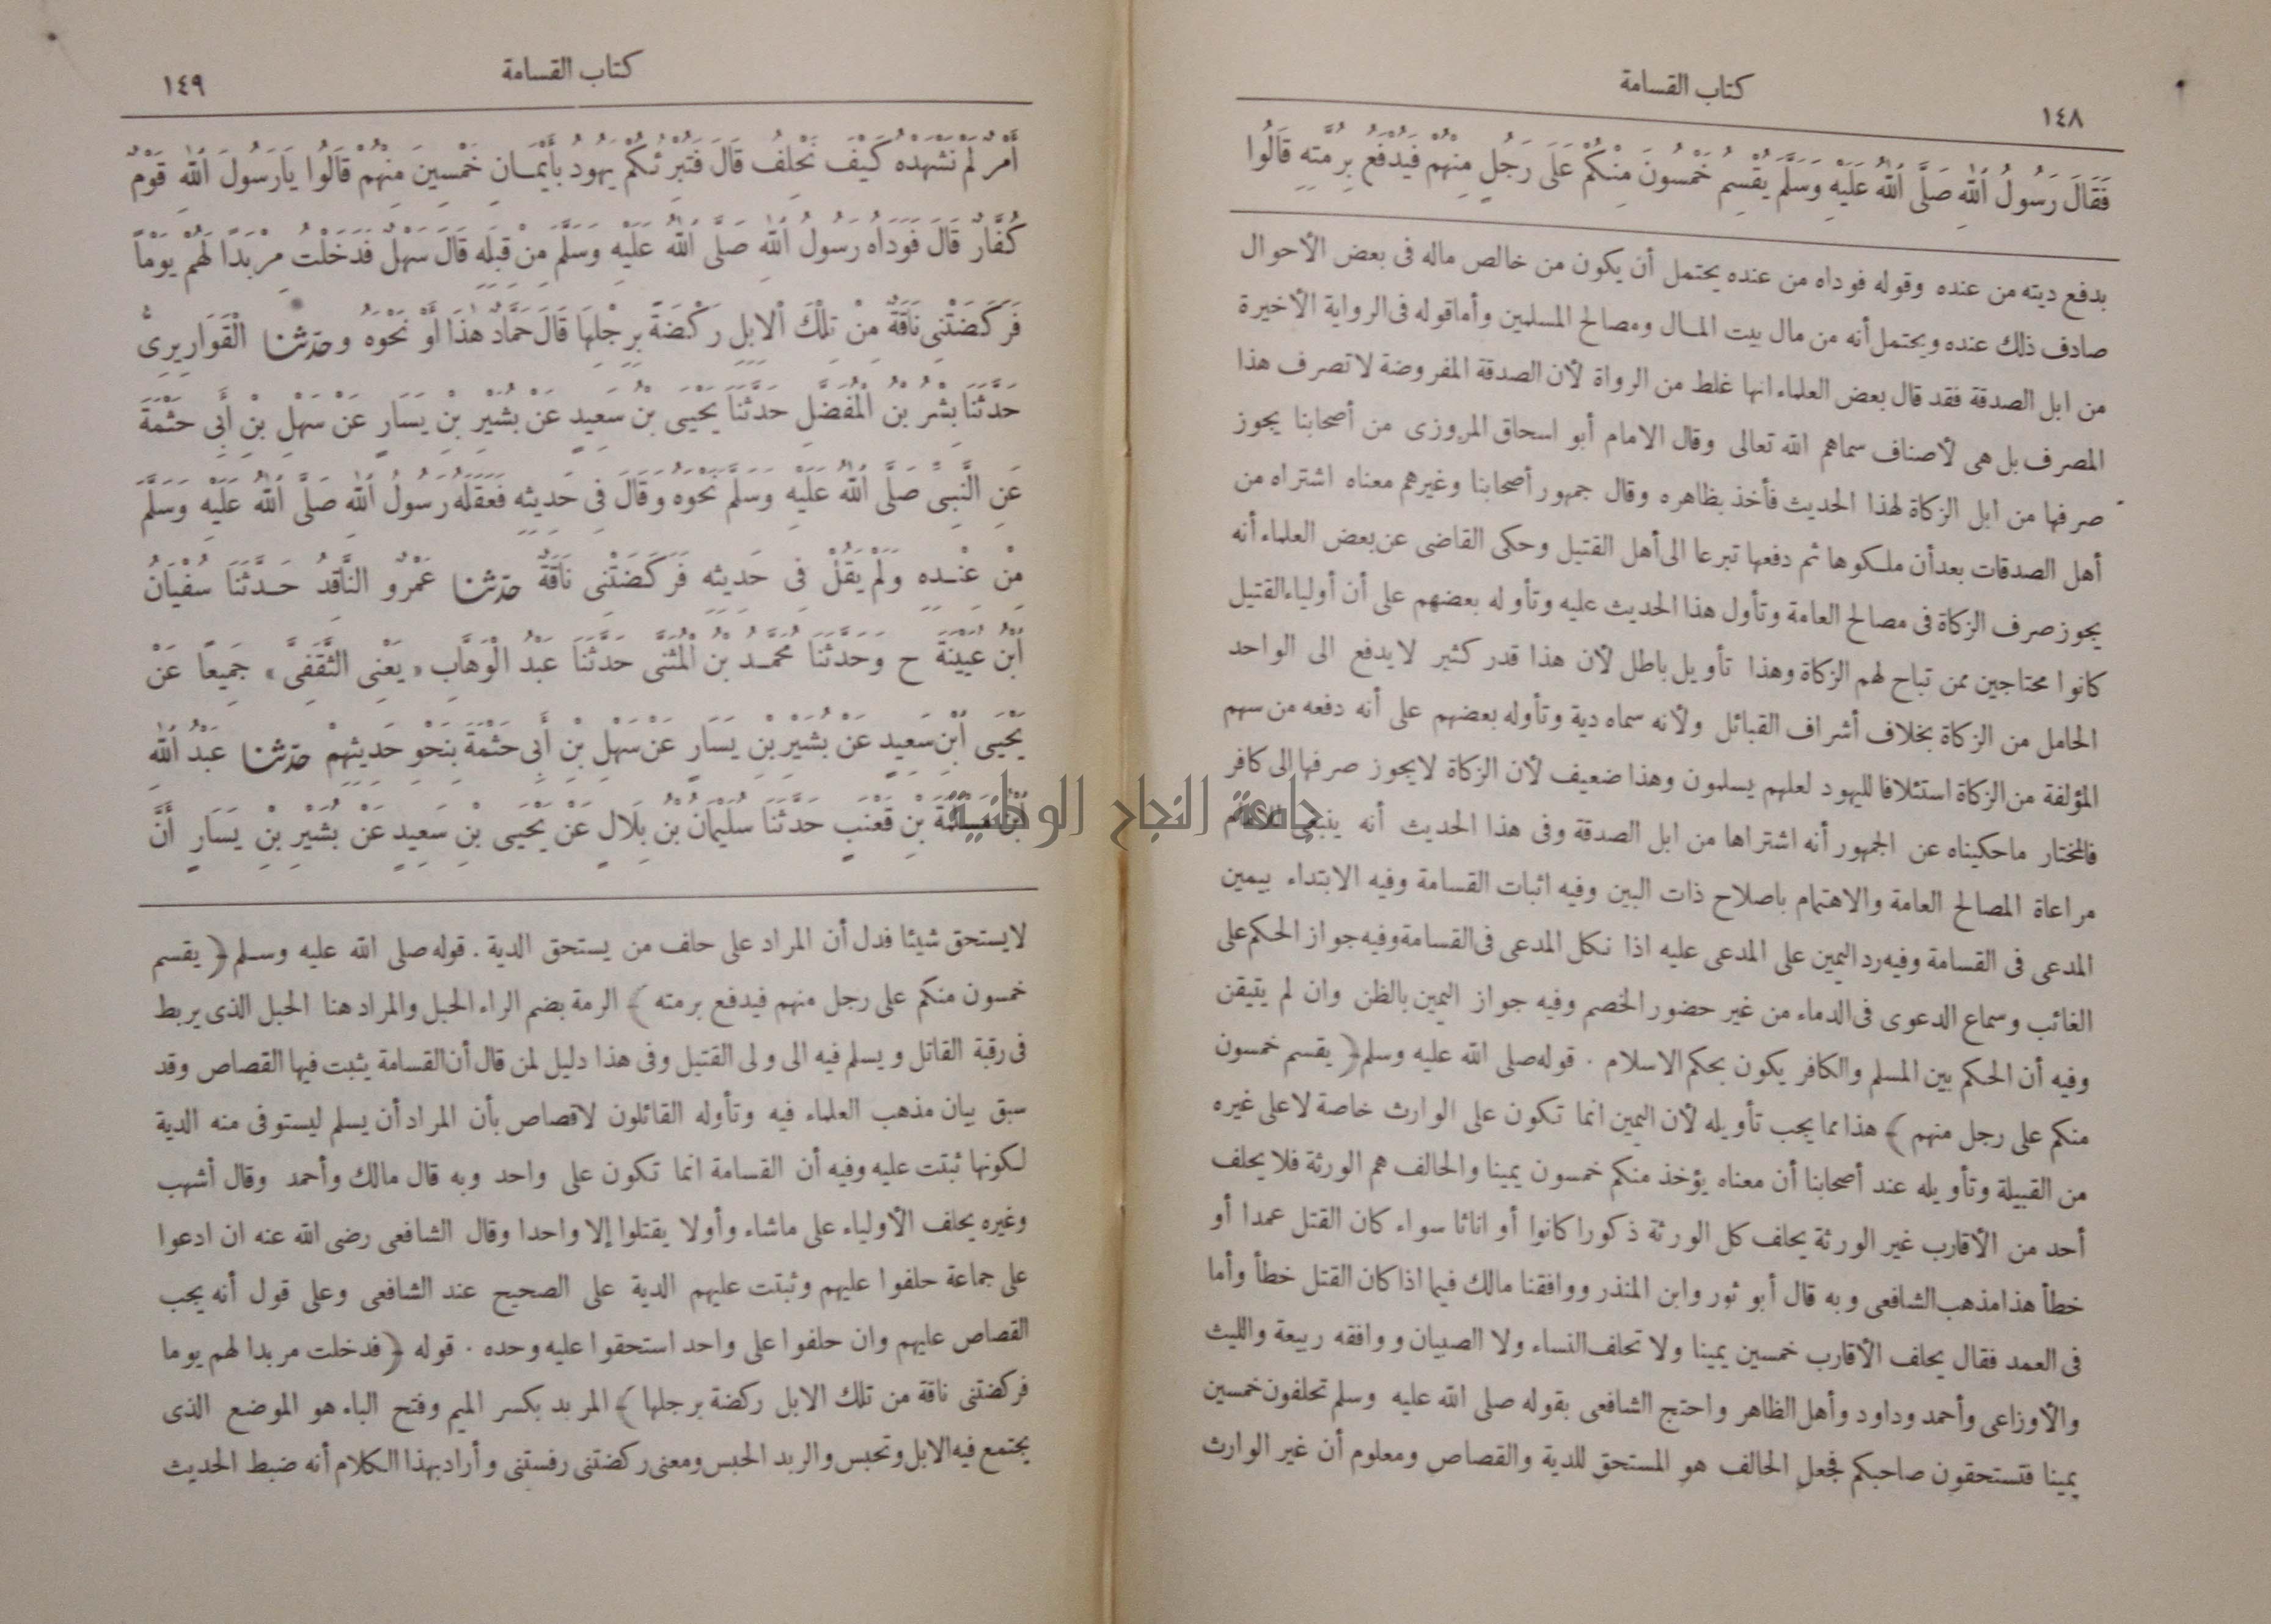 كتاب القسامة
١٤٨
فَقَالَ رَسُولُ اللهِ صَلَّى اللهُ عَلَيْهِ وَسَلَّمَ يُقْسِمُ خَمْسُونَ مِنْكُمْ عَلَى رَجُلٍ مِنْهُمْ فَيُدْفَعُ بِرُمَّتِهِ قَالُوا
بدفع ديته من عنده وقوله فوداه من عنده يحتمل أن يكون من خالص ماله فى بعض الأحوال
صادف ذلك عنده ويحتمل أنه من مال بيت المال ومصالح المسلمين وأما قوله فى الرواية الأخيرة
من ابل الصدقة فقد قال بعض العلماء انها غلط من الرواة لأن الصدقة المفروضة لا تصرف هذا
المصرف بل هى لأصناف سماهم الله تعالى وقال الامام أبو اسحاق المروزى من أصحابنا يجوز
صرفها من ابل الزكاة لهذا الحديث فأخذ بظاهره وقال جمهور أصحابنا وغيرهم معناه اشتراه من
أهل الصدقات بعد أن ملكوها ثم دفعها تبرعا الى أهل القتيل وحكى القاضى عن بعض العلماء أنه
يجوز صرف الزكاة فى مصالح العامة وتأول هذا الحديث عليه وتأوله بعضهم على أن أولياء القتيل
كانوا محتاجين ممن تباح لهم الزكاة وهذا تأويل باطل لأن هذا قدر كثير لا يدفع الى الواحد
الحامل من الزكاة بخلاف أشراف القبائل ولأنه سماه دية وتأوله بعضهم على أنه دفعه من سهم
المؤلفة من الزكاة استئلافا لليهود لعلهم يسلمون وهذا ضعيف لأن الزكاة لا يجوز صرفها الى كافر
فالمختار ما حكيناه عن الجمهور أنه اشتراها من ابل الصدقة وفى هذا الحديث أنه ينبغى للامام
مراعاة المصالح العامة والاهتمام باصلاح ذات البين وفيه اثبات القسامة وفيه الابتداء بيمين
المدعى فى القسامة وفيه رد اليمين على المدعى عليه اذا نكل المدعى فى القسامة وفيه جواز الحكم على
الغائب وسماع الدعوى فى الدماء من غير حضور الخصم وفيه جواز اليمين بالظن وان لم يتيقن
وفيه أن الحكم بين المسلم والكافر يكون بحكم الاسلام . قوله صلى الله عليه وسلم ﴿ يقسم خمسون
منكم على رجل منهم ﴾ هذا مما يجب تأويله لأن اليمين انما تكون على الوارث خاصة لا على غيره
من القبيلة وتأويله عند أصحابنا أن معناه يؤخذ منكم خمسون يمينا والحالف هم الورثة فلا يحلف
أحد من الأقارب غير الورثة يحلف كل الورثة ذكورا كانوا أو اناثا سواء كان القتل عمدا أو
خطأ هذا مذهب الشافعى وبه قال أبو ثور وابن المنذر ووافقنا مالك فيما اذا كان القتل خطأ وأما
فى العمد فقال يحلف الأقارب خمسين يمينا ولا تحلف النساء ولا الصبيان ووافقه ربيعة والليث
والأوزاعى وأحمد وداود وأهل الظاهر واحتج الشافعى بقوله صلى الله عليه وسلم تحلفون خمسين
يمينا فتستحقون صاحبكم فجعل الحالف هو المستحق للدية والقصاص ومعلوم أن غير الوارث
كتاب القسامة
١٤٩
أَمْرٌ لَمْ نَشْهَدْهُ كَيْفَ نَحْلِفُ قَالَ فَتُبْرِئُكُمْ يَهُودُ بِأَيْمَانِ خَمْسِينَ مِنْهُمْ قَالُوا يَارَسُولَ اللهِ قَوْمٌ
كُفَّارٌ قَالَ فَوَدَاهُ رَسُولُ اللهِ صَلَّى اللهُ عَلَيْهِ وَسَلَّمَ مِنْ قِبَلِهِ قَالَ سَهْلٌ فَدَخَلْتُ مِرْبَدًا لَهُمْ يَوْمًا
فَرَكَضَتْنِى نَاقَةٌ مِنْ تِلْكَ الْابِلِ رَكْضَةً بِرِجْلِهَا قَالَ حَمَّادٌ هَذَا أَوْ نَحْوَهُ وحدثنا الْقَوَارِيرِىُّ
حَدَّثَنَا بِشْرُ بْنُ الْمُفَضَّلِ حَدَّثَنَا يَحْيَى بْنُ سَعِيدٍ عَنْ بُشَيْرِ بْنِ يَسَارٍ عَنْ سَهْلِ بْنِ أَبِى حَثْمَةَ
عَنِ النَّبِىِّ صَلَّى اللهُ عَلَيْهِ وَسَلَّمَ نَحْوَهُ وَقَالَ فِى حَدِيثِهِ فَعَقَلَهُ رَسُولُ اللهِ صَلَّى اللهُ عَلَيْهِ وَسَلَّمَ
مِنْ عِنْدِهِ وَلَمْ يَقُلْ فِى حَدِيثِهِ فَرَكَضَتْنِى نَاقَةٌ حدثنا عَمْرٌو النَّاقِدُ حَدَّثَنَا سُفْيَانُ
ابْنُ عُيَيْنَةَ ح وَحَدَّثَنَا مُحَمَّدُ بْنُ الْمُثَنَّى حَدَّثَنَا عَبْدُ الْوَهَّابِ «يَعْنِى الثَّقَفِىَّ» جَمِيعًا عَنْ
يَحْيَى ابْنِ سَعِيدٍ عَنْ بُشَيْرِ بْنِ يَسَارٍ عَنْ سَهْلِ بْنِ أَبِى حَثْمَةَ بِنَحْوِ حَدِيثِهِمْ حدثنا عَبْدُ اللهِ
ابْنُ مَسْلَمَةَ بْنِ قَعْنَبٍ حَدَّثَنَا سُلَيْمَانُ بْنُ بِلَالٍ عَنْ يَحْيَى بْنِ سَعِيدٍ عَنْ بُشَيْرِ بْنِ يَسَارٍ أَنَّ
لا يستحق شيئا فدل أن المراد على حلف من يستحق الدية . قوله صلى الله عليه وسلم ﴿ يقسم
خمسون منكم على رجل منهم فيدفع برمته ﴾ الرمة بضم الراء الحبل والمراد هنا الحبل الذى يربط
فى رقبة القاتل ويسلم فيه الى ولى القتيل وفى هذا دليل لمن قال أن القسامة يثبت فيها القصاص وقد
سبق بيان مذهب العلماء فيه وتأوله القائلون لا قصاص بأن المراد أن يسلم ليستوفى منه الدية
لكونها ثبتت عليه وفيه أن القسامة انما تكون على واحد وبه قال مالك وأحمد وقال أشهب
وغيره يحلف الأولياء على ماشاء وأولا يقتلوا إلا واحدا وقال الشافعى رضى الله عنه ان ادعوا
على جماعة حلفوا عليهم وثبتت عليهم الدية على الصحيح عند الشافعى وعلى قول أنه يجب
القصاص عليهم وان حلفوا على واحد استحقوا عليه وحده . قوله ﴿ فدخلت مربدا لهم يوما
فركضتنى ناقة من تلك الابل ركضة برجلها ﴾ المربد بكسر الميم وفتح الباء هو الموضع الذى
يجتمع فيه الابل وتحبس والربد الحبس ومعنى ركضتنى رفستنى وأراد بهذا الكلام أنه ضبط الحديث
جامعة النجاح الوطنية